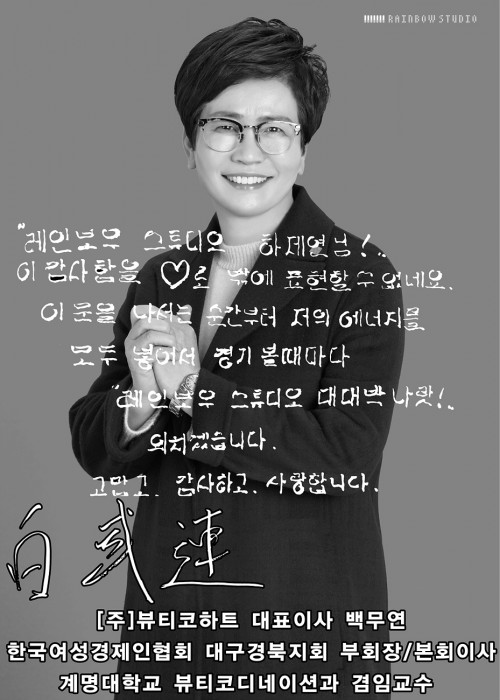 RAINBOW STUDIO
"레인보우 스튜디오 하제열님!..
이 감사함을 ♡로 밖에 표현할 수 없네요.
이 문을 나서는 순간부터 저의 에너지를
모두 넣어서 경기 볼때마다
"레인보우 스튜디오 대대박 나랏!..
외치겠습니다.
고맙고. 감사하고. 사랑합니다.
白武連
[주]뷰티코하트 대표이사 백무연
한국여성경제인협회 대구경북지회 부회장/본회이사
계명대학교 뷰티코디네이션과 겸임교수